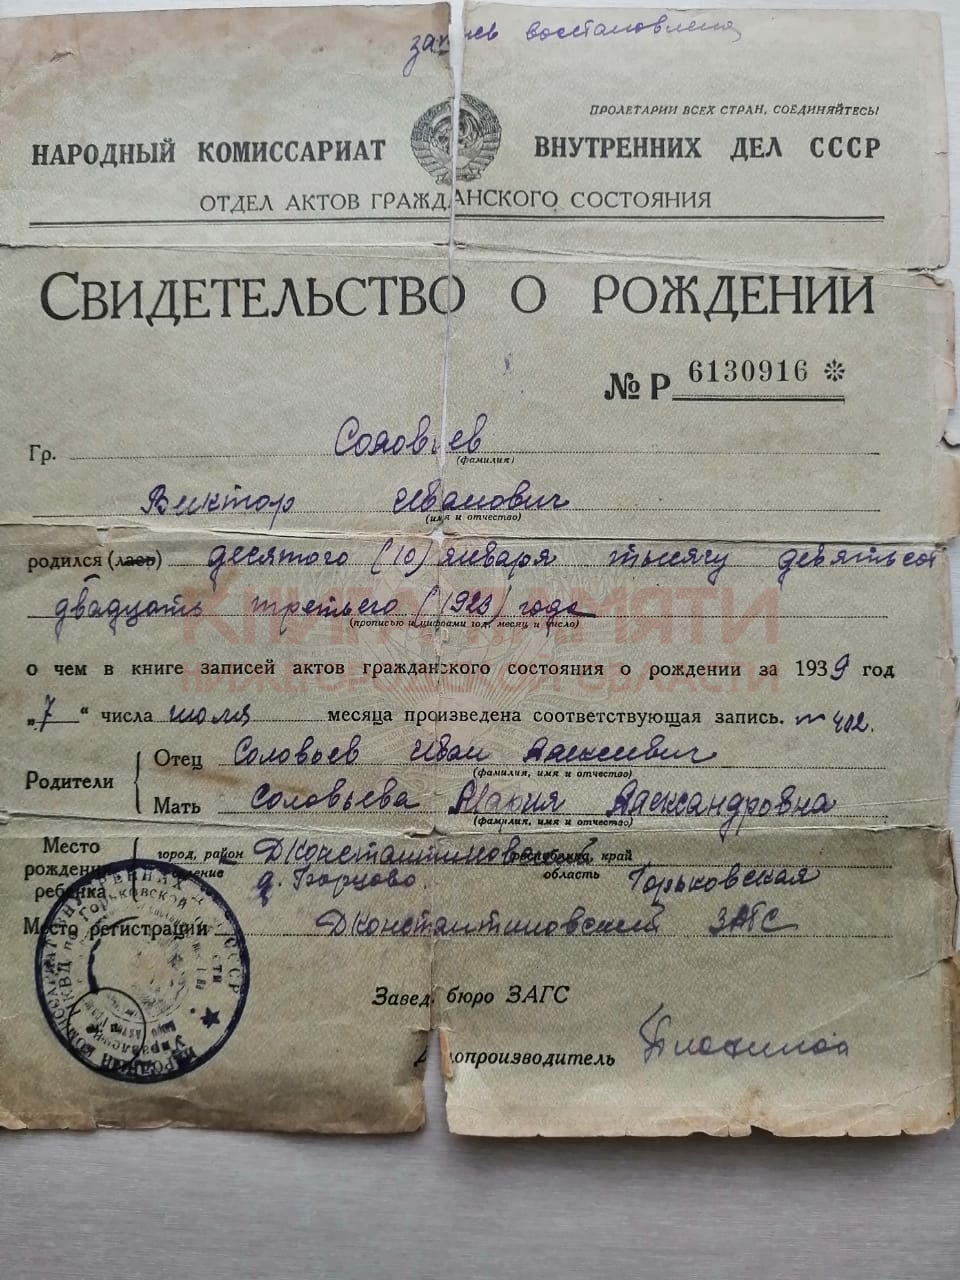 запись восстановлена
ПРОЛЕТАРИИ ВСЕХ СТРАН, СОЕДИНЯЙТЕСЬ!
НАРОДНЫЙ КОМИССАРИАТ ВНУТРЕННИХ ДЕЛ СССР
ОТДЕЛ АКТОВ ГРАЖДАНСКОГО СОСТОЯНИЯ
СВИДЕТЕЛЬСТВО О РОЖДЕНИИ
№ Р 6130916
Гр. Соловьев
(фамилия)
Виктор Иванович
(имя и отчество)
родился (лась) десятого (10) января тысячу девятьсот
двадцать третьего (1923) года
(прописью и цифрами год, месяц и число)
КНИГА ПАМЯТИ
НИЖЕГОРОДСКОЙ ОБЛАСТИ
о чем в книге записей актов гражданского состояния о рождении за 1939 год
„7“ числа июля месяца произведена соответствующая запись. № 402.
Родители
Отец Соловьев Иван Алексеевич
(фамилия, имя и отчество)
Мать Соловьева Мария Александровна
(фамилия, имя и отчество)
Место рождения ребенка
город, район ДКонстантиновский республика, край
д. Борцово область Горьковская
Место регистрации ДКонстантиновский ЗАГС
Завед. бюро ЗАГС
Делопроизводитель